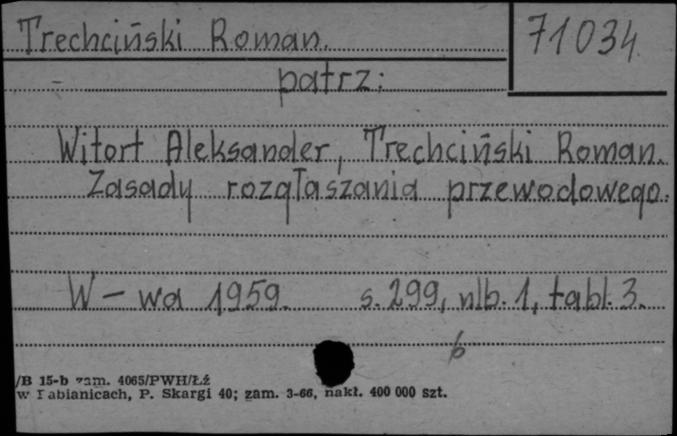 Trechciński Roman.
71034
patrz:
Witort Aleksander, Trechciński Roman.
Zasady rozgłaszania przewodowego.
W-wa 1959. s. 299, nlb. 1, tabl. 3.
b
/B 15-b zam. 4065/PWH/Łź
w Pabianicach, P. Skargi 40; zam. 3-66, nakł. 400 000 szt.